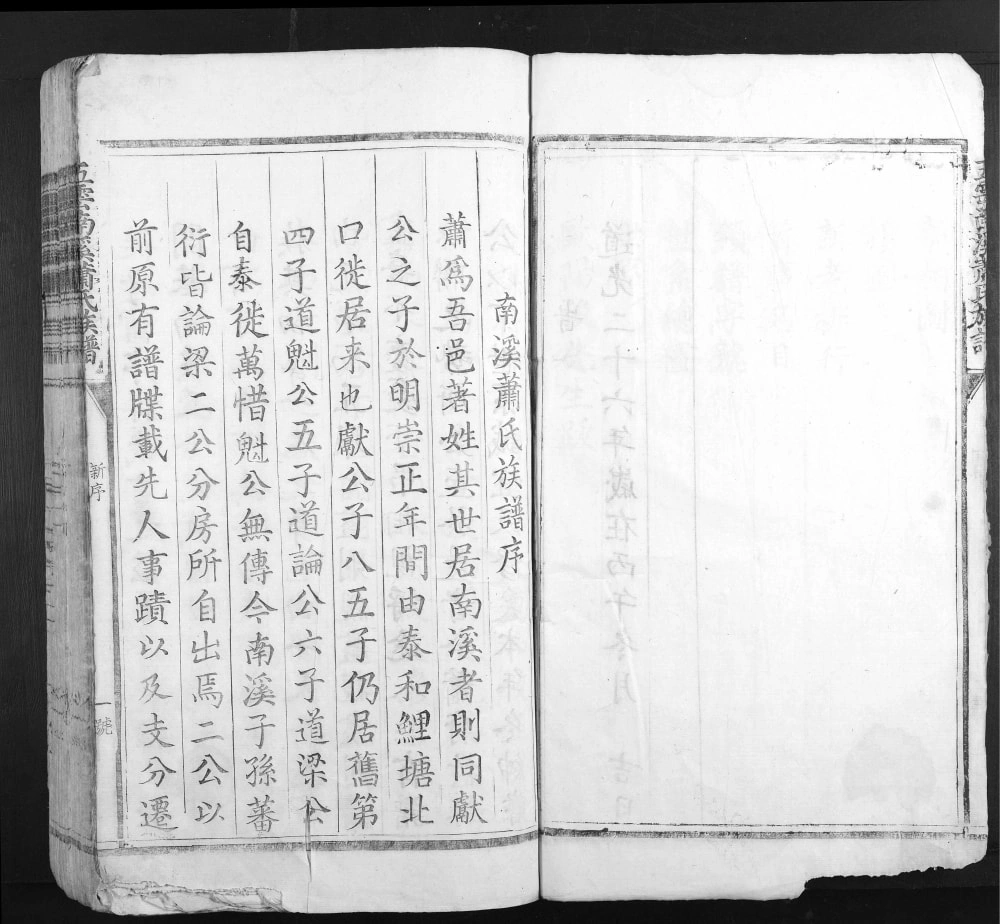 南溪蕭氏族譜序
蕭爲吾邑著姓其世居南溪者則同獻
公之子於明崇正年間由泰和鯉塘北
口徙居来也獻公子八五子仍居舊第
四子道魁公五子道論公六子道梁公
自泰徙萬惜魁公無傳今南溪子孫蕃
衍皆論梁二公分房所自出焉二公以
前原有譜牒載先人事蹟以及支分遷
新序
一號
五雲南溪蕭氏族譜